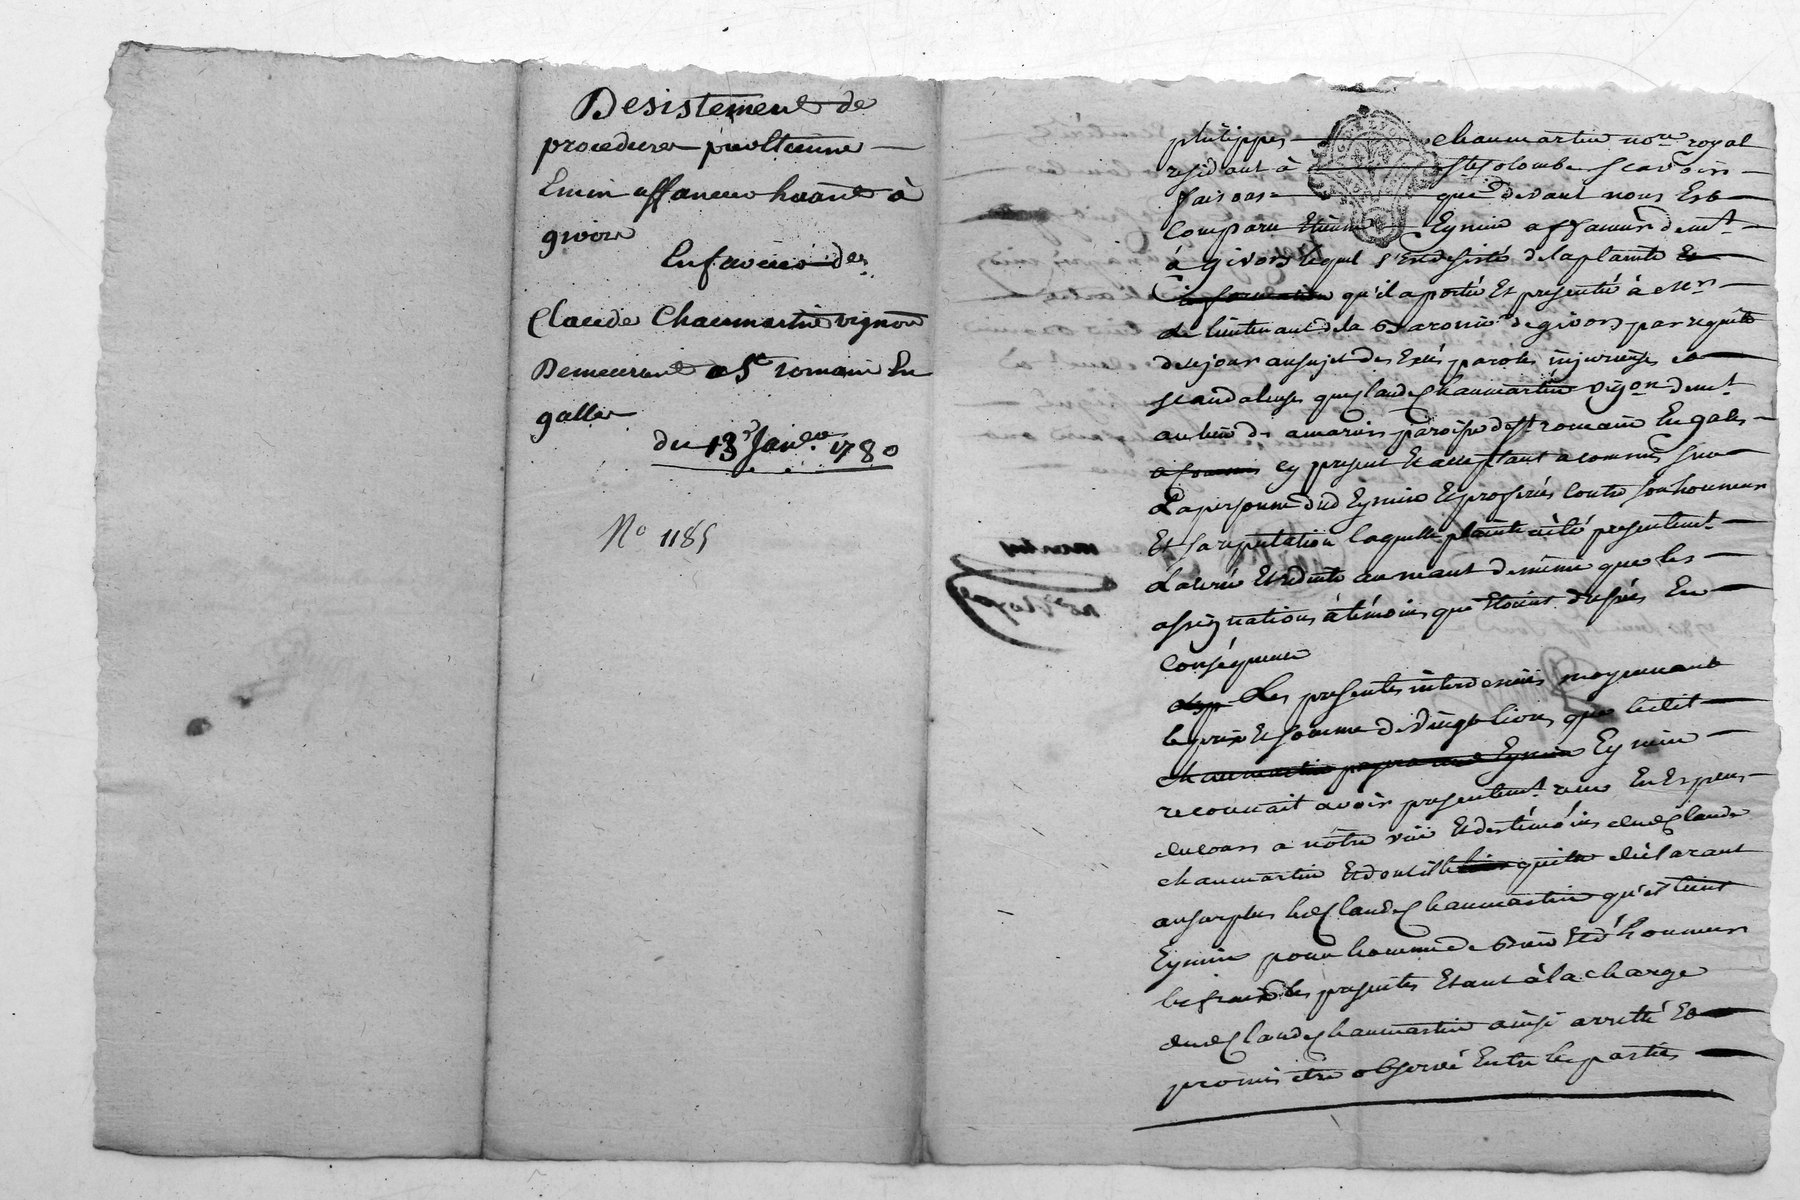 Desistement de
procedures par Etienne
Emin affaneur habitant à
givors
En faveur de
Claude Chaumartin vigneron
Demeurant a St romain En
galles
du 13e Janer. 1780
No 1185
philippes chaumartin nore. royal
residant à ste Colombe scavoir
faisons que devant nous Est
comparu Etienne Eymin affaneur demt.
à givors lequel s'est desisté de la plainte et
information qu'il a portée Et presentée à Mr.
Le lieutenant de la Baronnie de givors par requête
de ce jour au sujet des paroles injurieuses et
scandaleuses que Claude Chaumartin vigon. demt.
au lieu de amarins paroisse de st. romain En gales
cy present Et acceptant a commis sur
La personne dud Eymin Et proferées contre son honneur
Et sa reputation laquelle plainte a été presentemt.
Et de même que les
assignations à témoins que Etoient En
conséquence
Les presentes moyennant
le prix Et somme de vingt livres que ledit
chaumartin payera aud Eymin Eymin
reconnait avoir presentemt. reçu En Especes
du cours a nôtre vüe Et des témoins dud Claude
chaumartin Et dont il le quitte déclarant
au surplus led Claude Chaumartin qu'il tient
Eymin pour homme de Bien Et d'honneur
les frais des presentes Etant à la charge
dud Claude Chaumartin ainsi arretté Et
promis être observé Entre les parties